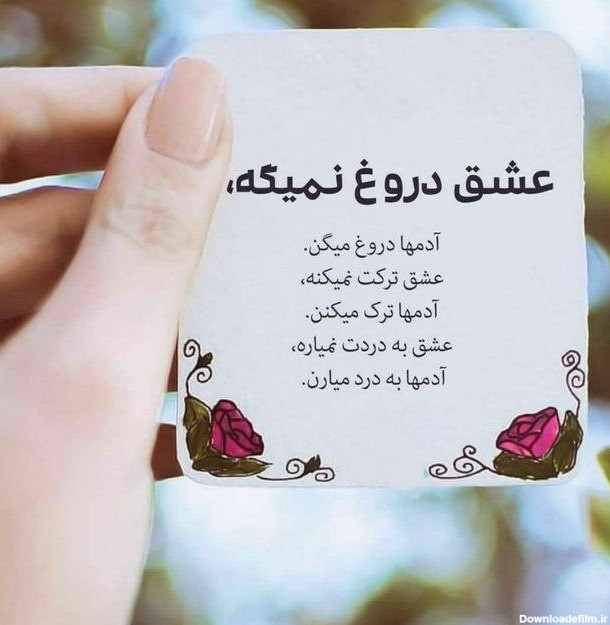 عشق دروغ نمیگه،
آدمها دروغ میگن.
عشق ترکت نمیکنه،
آدمها ترک میکنن.
عشق به دردت نمیاره،
آدمها به درد میارن.
Downloadefilm.ir